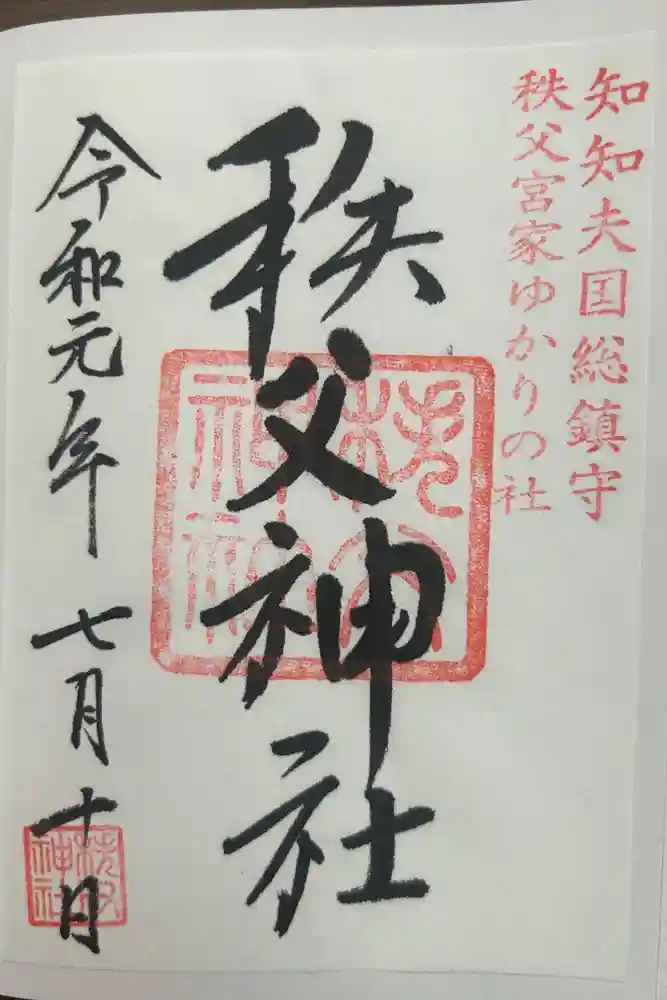 知知夫国総鎮守
秩父宮家ゆかりの社
秩父神社
令和元年 七月十日
秩父神社
秩父神社